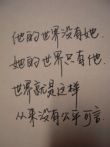 他的世界没有她.
她的世界只有他.
世界就是这样
从来没有公平可言